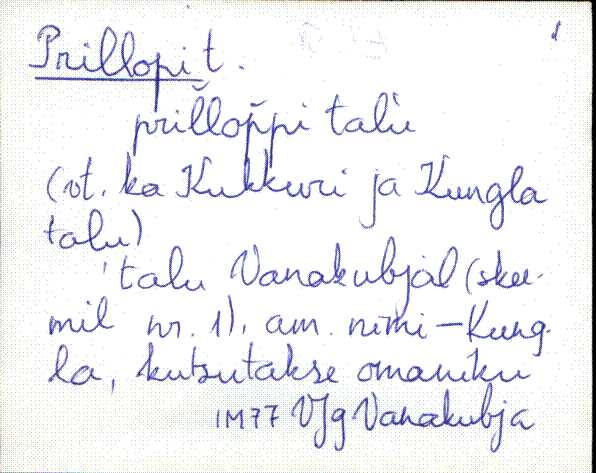 Prillopi t.
prilloppi talu
(vt. ka Kukkuri ja Kungla
talu)
talu Vanakubjal (skee-
mil nr. 1), am. nimi – Kung-
la, kutsutakse omaniku
1M77 VJg Vanakubja